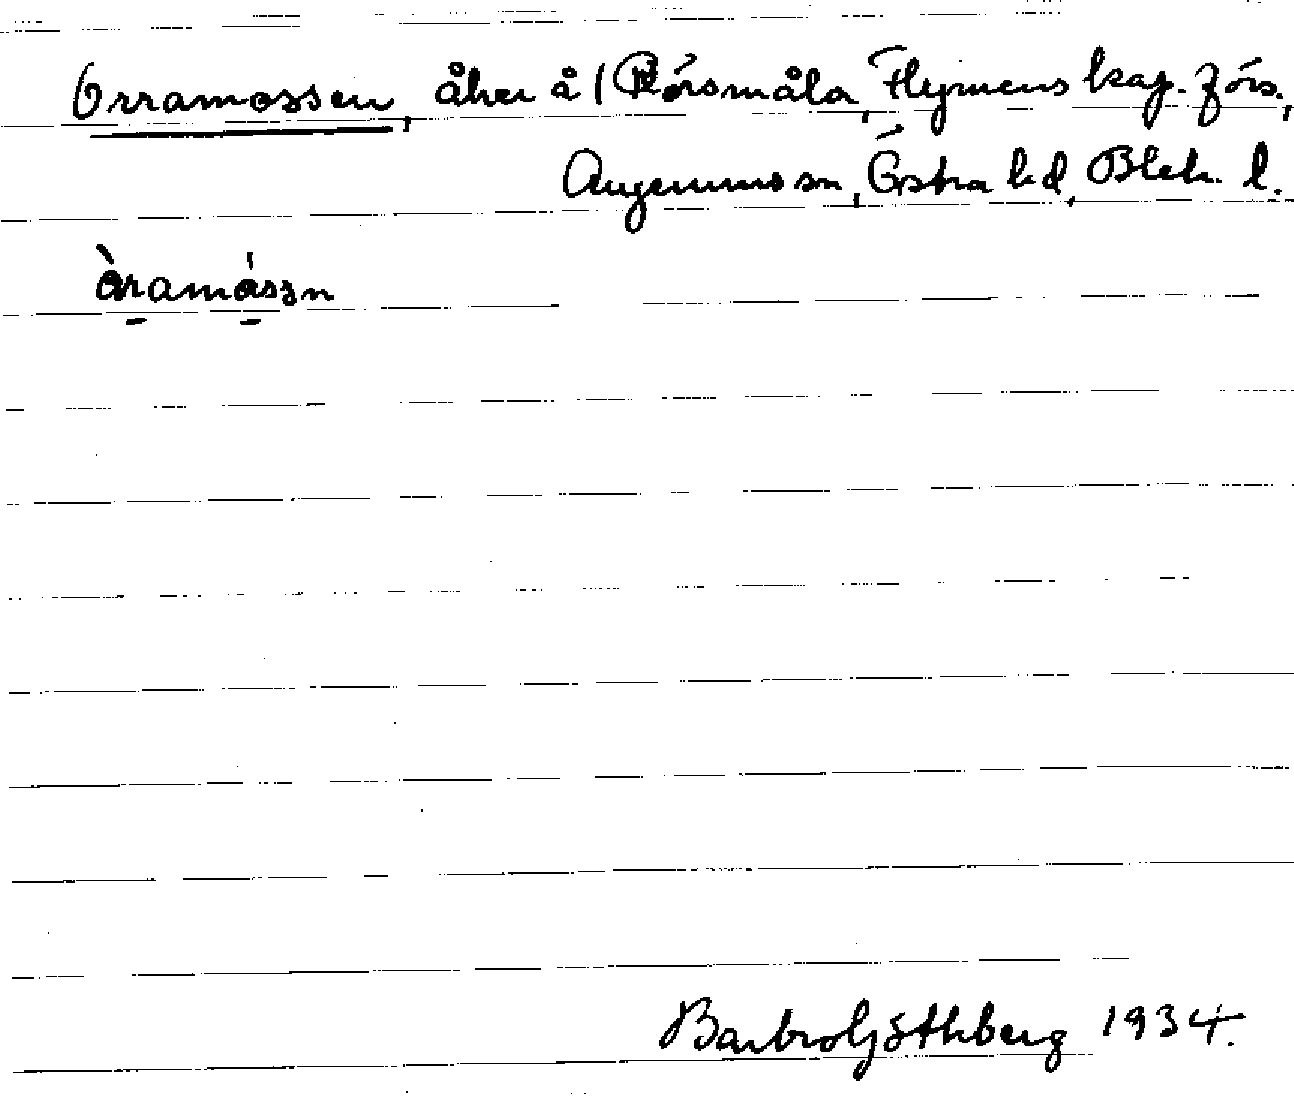 Orramossen, åker å 1 Rörsmåla, Flymens kap. förs.,
Augerums sn, Östra hd, Blek. l.
àramássn
Barbro Göthberg 1934.